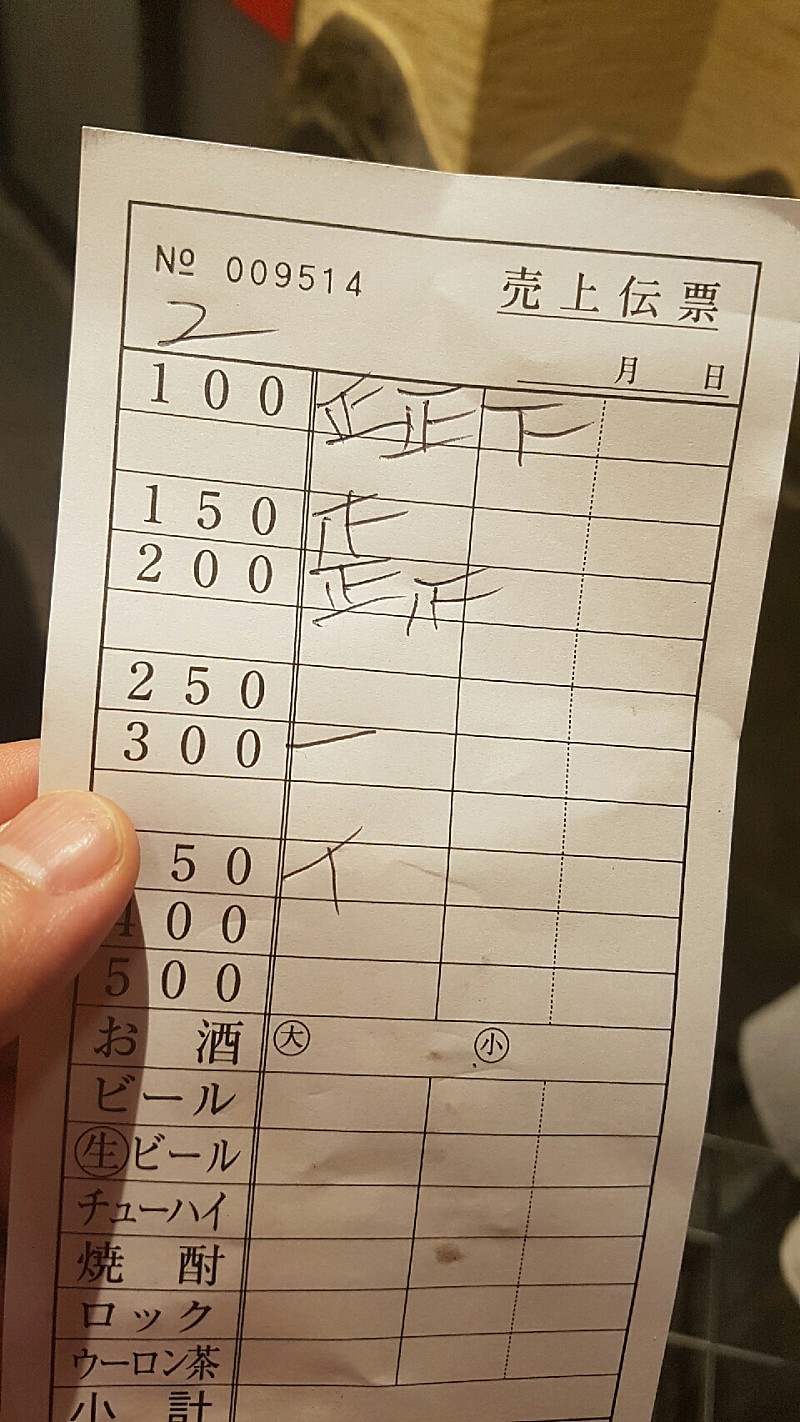 № 009514 売上伝票
2 月 日
100 正正下
150 正
200 正正
250
300 一
50
400
500
お酒 大 小
ビール
生ビール
チューハイ
焼酎
ロック
ウーロン茶
小計